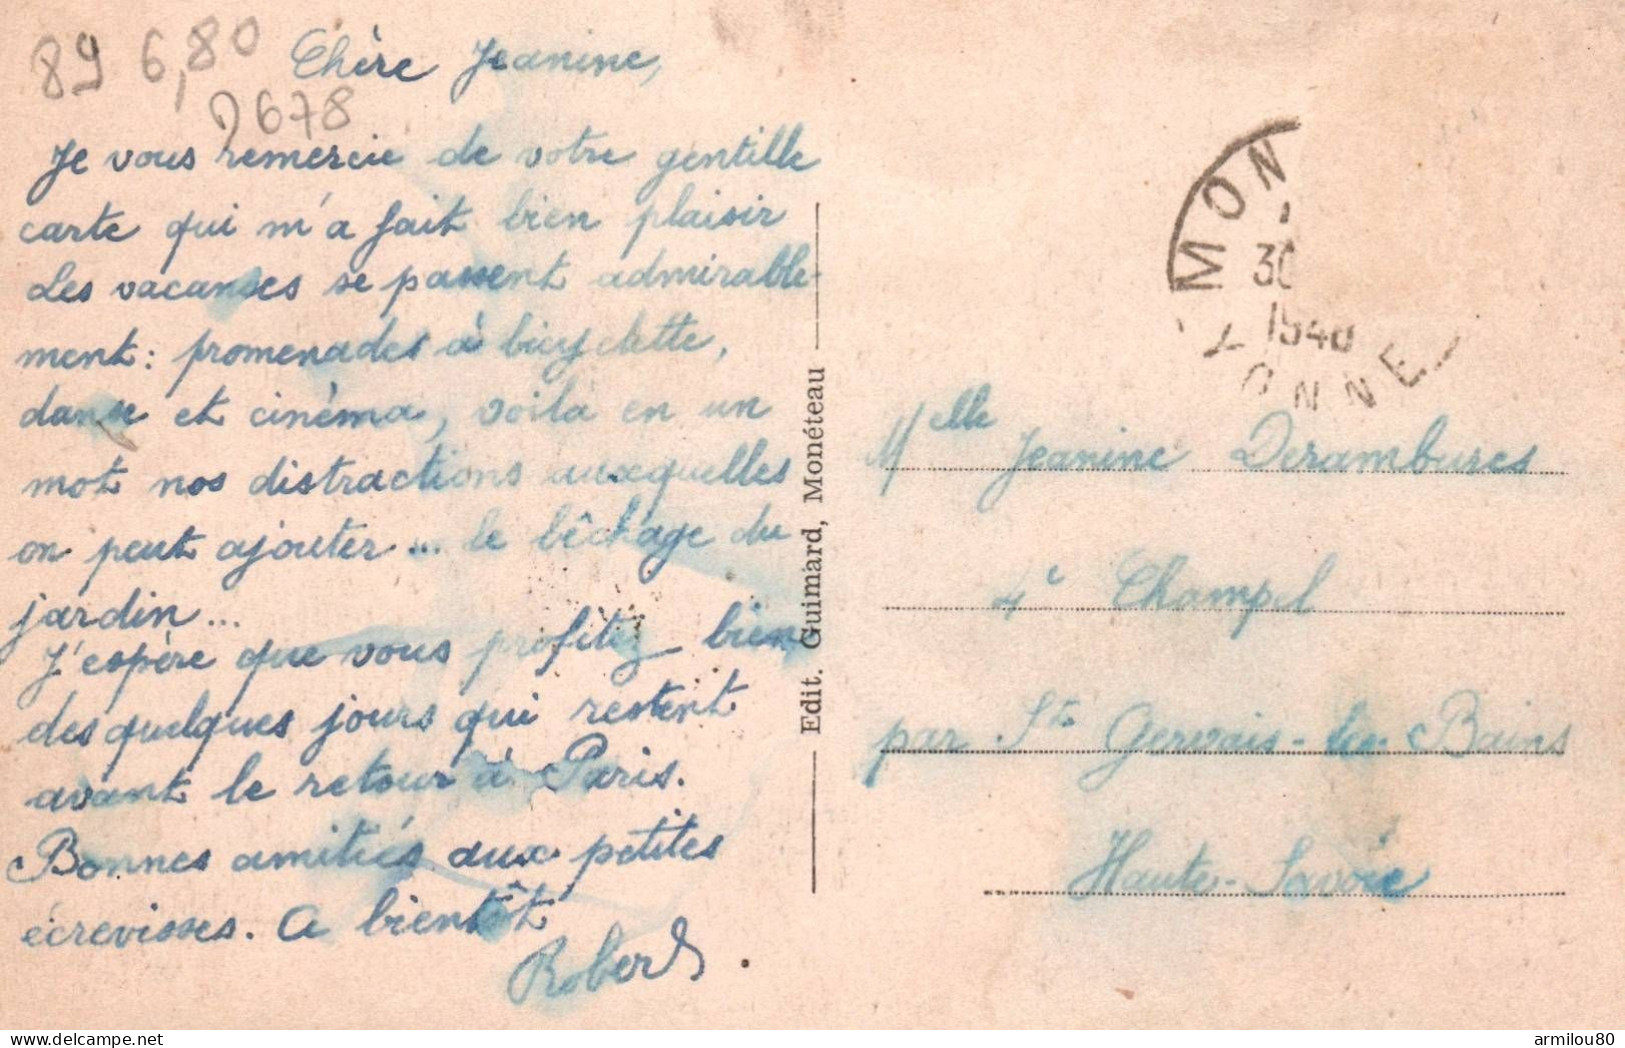 89 6,80
2678
Chère Jeanine,
Je vous remercie de votre gentille
carte qui m'a fait bien plaisir
Les vacanses se passent admirable-
ment : promenades à bicyclette,
danse et cinéma, voila en un
mot nos distractions auxquelles
on peut ajouter ... le bêchage du
jardin ...
J'espère que vous profitez bien
des quelques jours qui restent
avant le retour à Paris.
Bonnes amitiés aux petites
écrevisses. A bientôt
Robert
Edit. Guimard, Monéteau
MON
30
1946
YONNE
Melle Jeanine Derambures
4e Champel
par St Gervais-les-Bains
Haute-Savoie
armilou80